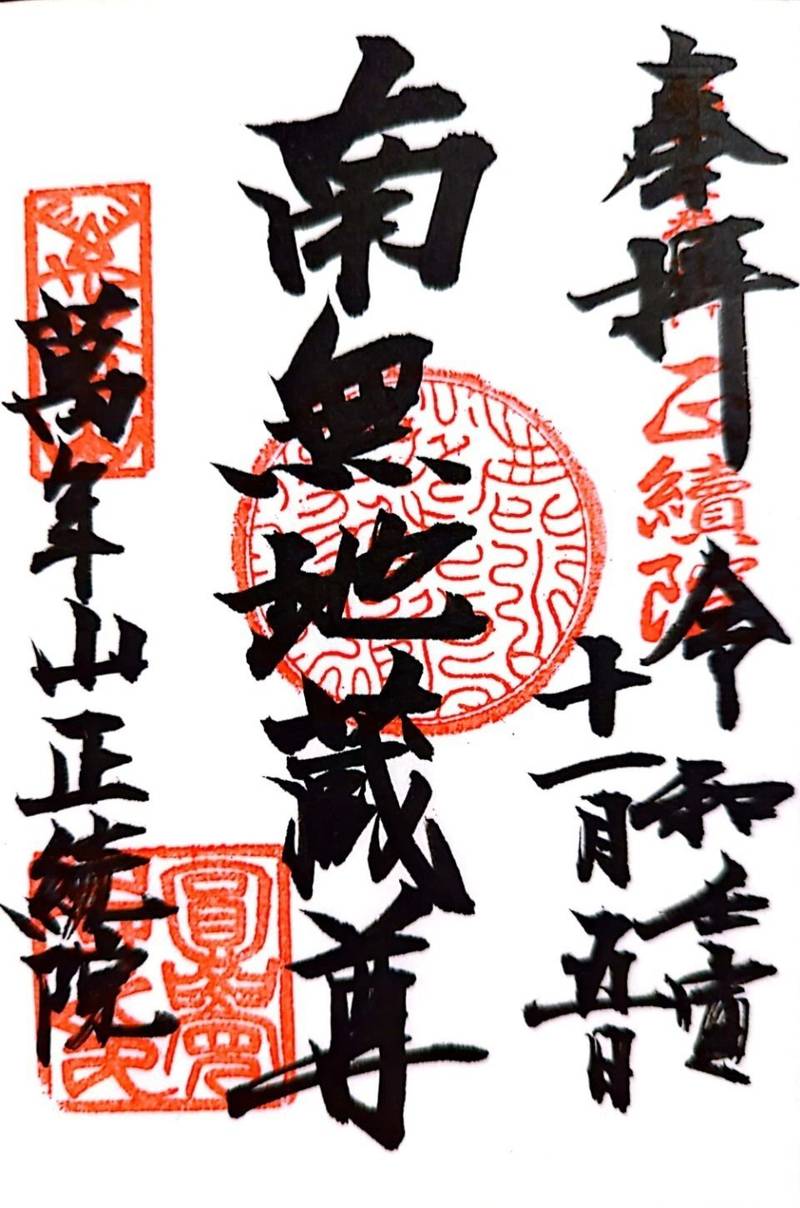 奉拝
正續院
令和壬寅
十一月五日
南無地蔵尊
萬年山正続院